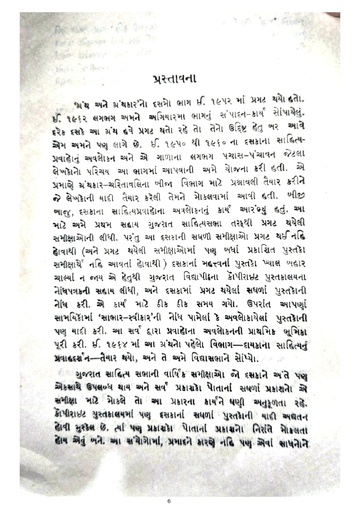 પ્રસ્તાવના
'ગ્રંથ અને ગ્રંથકાર'નો દસમો ભાગ ઈ. ૧૯૫૨ માં પ્રગટ થયો હતો.
ઈ. ૧૯૬૨ લગભગ અમને અગિયારમા ભાગનું સંપાદન-કાર્ય સોંપાયેલું.
દરેક દસકે આ ગ્રંથ હવે પ્રગટ થતો રહે તો તેનો ઉદ્દિષ્ટ હેતુ બર આવે
એમ અમને પણ લાગે છે. ઈ. ૧૯૫૦ થી ૧૯૬૦ ના દસકાના સાહિત્ય-
પ્રવાહોનું અવલોકન અને એ ગાળાના લગભગ પચાસ-પંચાવન જેટલા
લેખકોનો પરિચય આ ભાગમાં આપવાની અમે યોજના કરી હતી. એ
પ્રમાણે ગ્રંથકાર-ચરિતાવલિના બીજા વિભાગ માટે પ્રશ્નાવલી તૈયાર કરીને
જે લેખકોની યાદી તૈયાર કરેલી તેમને મોકલવામાં આવી હતી. બીજી
બાજુ, દસકાના સાહિત્યપ્રવાહોના અવલોકનનું કાર્ય આરંભ્યું હતું. આ
માટે અમે પ્રથમ સહાય ગુજરાત સાહિત્યસભા તરફથી પ્રગટ થયેલી
સમીક્ષાઓની લીધી. પરંતુ આ દસકાની સઘળી સમીક્ષાઓ પ્રગટ થઈ નહિ
હોવાથી (અને પ્રગટ થયેલી સમીક્ષાઓમાં પણ બધાં પ્રકાશિત પુસ્તકો
સમીક્ષાર્થે નહિ આવતાં હોવાથી) દસકાનાં મહત્ત્વનાં પુસ્તકો ખ્યાલ બહાર
ચાલ્યાં ન જાય એ હેતુથી ગુજરાત વિદ્યાપીઠના કૉપીરાઈટ પુસ્તકાલયના
નોંધપત્રકની સહાય લીધી, અને દસકામાં પ્રગટ થયેલાં સઘળાં પુસ્તકોની
નોંધ કરી. એ કાર્ય માટે ઠીક ઠીક સમય ગયો. ઉપરાંત આપણાં
સામયિકોમાં 'સાભાર-સ્વીકાર'ની નોંધ પામેલાં કે અવલોકાયેલાં પુસ્તકોની
પણ યાદી કરી. આ સર્વ દ્વારા પ્રવાહોના અવલોકનની પ્રાથમિક ભૂમિકા
પૂરી કરી. ઈ. ૧૯૬૪ માં આ ગ્રંથનો પહેલો વિભાગ—દાયકાના સાહિત્યનું
પ્રવાહદર્શન—તૈયાર થયો, અને તે અમે વિદ્યાસભાને સોંપ્યો.
ગુજરાત સાહિત્ય સભાની વાર્ષિક સમીક્ષાઓ જો દસકાને અંતે પણ
એકસાથે ઉપલબ્ધ થાય અને સર્વ પ્રકાશકો પોતાનાં સઘળાં પ્રકાશનો એ
સમીક્ષા માટે મોકલે તો આ પ્રકારના કાર્યને ઘણી અનુકૂળતા રહે.
કૉપીરાઈટ પુસ્તકાલયમાં પણ દસકાનાં સઘળાં પુસ્તકોની યાદી અદ્યતન
હોવી મુશ્કેલ છે. ત્યાં પણ પ્રકાશકો પોતાનાં પ્રકાશનો નિયમિત મોકલતા
હોય એવું બને. આ સંજોગોમાં, પ્રમાદને કારણે નહિ પણ એવાં સાધનોને
6